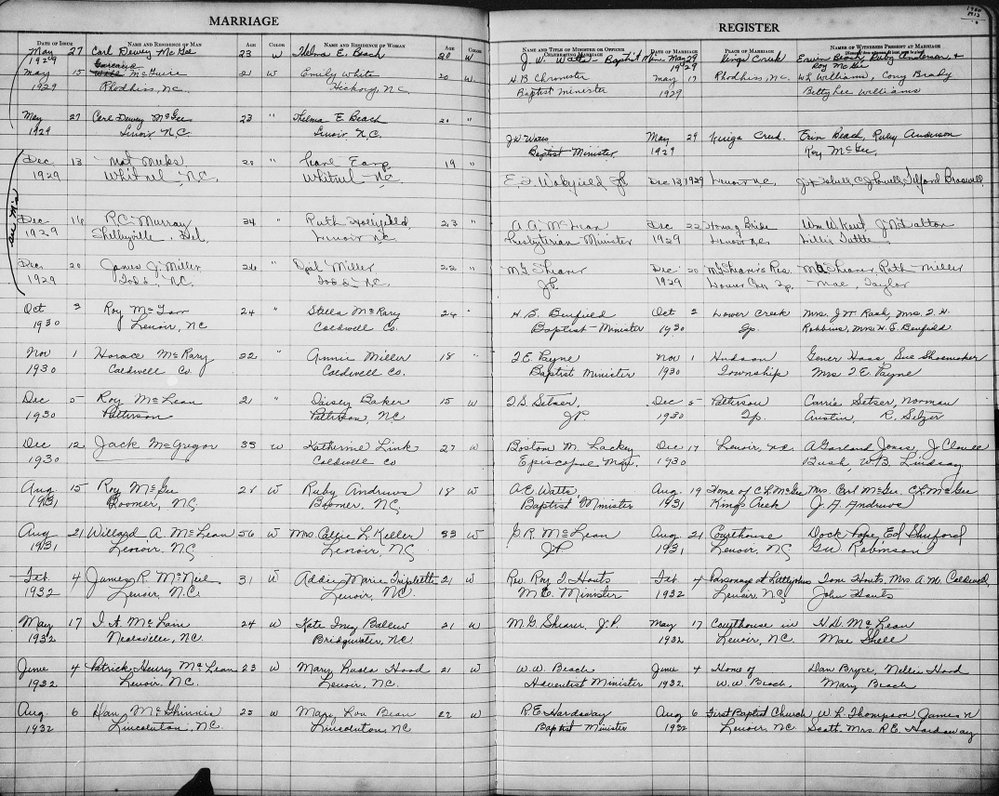 MARRIAGE
DATE OF ISSUE NAME AND RESIDENCE OF MAN AGE COLOR NAME AND RESIDENCE OF WOMAN AGE COLOR
May 27 Carl Dewey McGee 23 W Thelma E. Beach 20 W
1929
May 15 McGuire 21 W Emily White 20 W
1929 Rhodhiss, N.C. Hickory N.C.
May 27 Carl Dewey McGee 23 " Thelma E Beach 20 "
1929 Lenoir N.C. Lenoir N.C.
Dec 13 20 " Earp 19 "
1929 Whitnel N.C. Whitnel N.C.
Dec 16 R.C. Murray 34 " Ruth 23 "
1929 Shelbyville, Del. Lenoir N.C.
Dec. 20 James J. Miller 26 " Opal Miller 22 "
1929 Todd N.C. Todd N.C.
Oct 2 Roy 24 " Stella McRary 24 "
1930 Lenoir, NC Caldwell Co.
Nov 1 Horace McRary 22 " Annie Miller 18 "
1930 Caldwell Co Caldwell Co.
Dec 5 Roy McLean 21 " Daisey Baker 15 W
1930 Patterson Patterson, N.C
Dec 12 Jack McGregor 33 W Katherine Link 27 W
1930 Caldwell Co
Aug 15 Roy McGee 28 W Ruby Andrews 18 W
1931 Boomer, N.C. Boomer, N.C.
Aug 21 Willard A McLean 56 W Mrs. Callie L Keller 53 W
1931 Lenoir, N.C. Lenoir, N.C.
Feb. 4 James R. McNeil 31 W Addie Marie Triplette 21 W
1932 Lenoir, N.C. Lenoir, N.C.
May 17 I. A. McLain 24 W Kate Iney Ballew 21 W
1932 N.C. Bridgwater, N.C
June 4 Patrick Henry McLean 23 W Mary Hood 21 W
1932 Lenoir, N.C. Lenoir, N.C.
Aug 6 McGhinnis 23 W Mary Lou Bean 22 W
1932 Lincolnton, N.C. Lincolnton, N.C
REGISTER
NAME AND TITLE OF MINISTER OR OFFICER CELEBRATING MARRIAGE DATE OF MARRIAGE PLACE OF MARRIAGE NAMES OF WITNESSES PRESENT AT MARRIAGE
J. W. Watts - Baptist Min May 29 Kings Creek Erwin Beach, Ruby Anderson &
1929 Roy McGee
H B Chronister May 17 Rhodhiss, N.C. W L Williams, Cony
Baptist minister 1929 Betty Lee Williams
J W Watts May 29 Kings Creek Beach, Ruby Anderson
Baptist Minister 1929 Roy McGee,
E. F. Wakefield JP Dec 13 1929 Lenoir N.C.
A. A. McLean Dec 22 Home of Bride Wm W Kent, J. N. Dalton
Presbyterian Minister 1929 Lenoir N.C. Lillie Tuttle
M G Shearer Dec 20 M G Shearer's Res Shearer, Ruth Miller
JP 1929 Lower Crk Tp. Mae Taylor
H. E. Benfield Oct 2 Lower Creek Mrs. J W Rash, Mrs. T. H.
Baptist Minister 1930 Tp. Robbins, Mrs. H. E. Benfield
T. E. Payne Nov 1 Hudson Gener Hass, Sue Shoemaker
Baptist Minister 1930 Township Mrs T E. Payne
T. S. Setser, Dec 5 Patterson Carrie Setser, Norman
JP 1930 Tp. Austin, R. Setzer
Boston M. Lackey Dec 17 Lenoir, N.C. A Garland Jonas, J. Clavell
Episcopal Min. 1930 Bush, W. B. Lindsay
A E Watts Aug 19 Home of C L McGee Mrs. Carl McGee, C L McGee
Baptist Minister 1931 Kings Creek J. A. Andrews
G. R. McLean Aug 21 Courthouse Dock Pope, Ed Shuford
JP 1931 Lenoir, N.C Robinson
Rev. Roy T Houts Feb. 4 Parsonage at Tom Houts, Mrs. A. M. Caldwell
M. E. Minister 1932 Lenoir, N.C. John Houts
M. G. Shearer, J.P. May 17 Courthouse in H. D. McLean
1932 Lenoir, N.C. Mae Shell
W. W. Beach June 4 Home of Dan Bryce, Nellie Hood
Adventist Minister 1932 W. W. Beach. Mary Beach
R. E. Hardaway Aug 6 First Baptist Church W. L. Thompson, James N
Baptist Minister 1932 Lenoir, N.C. Scott, Mrs. R. E. Hardaway